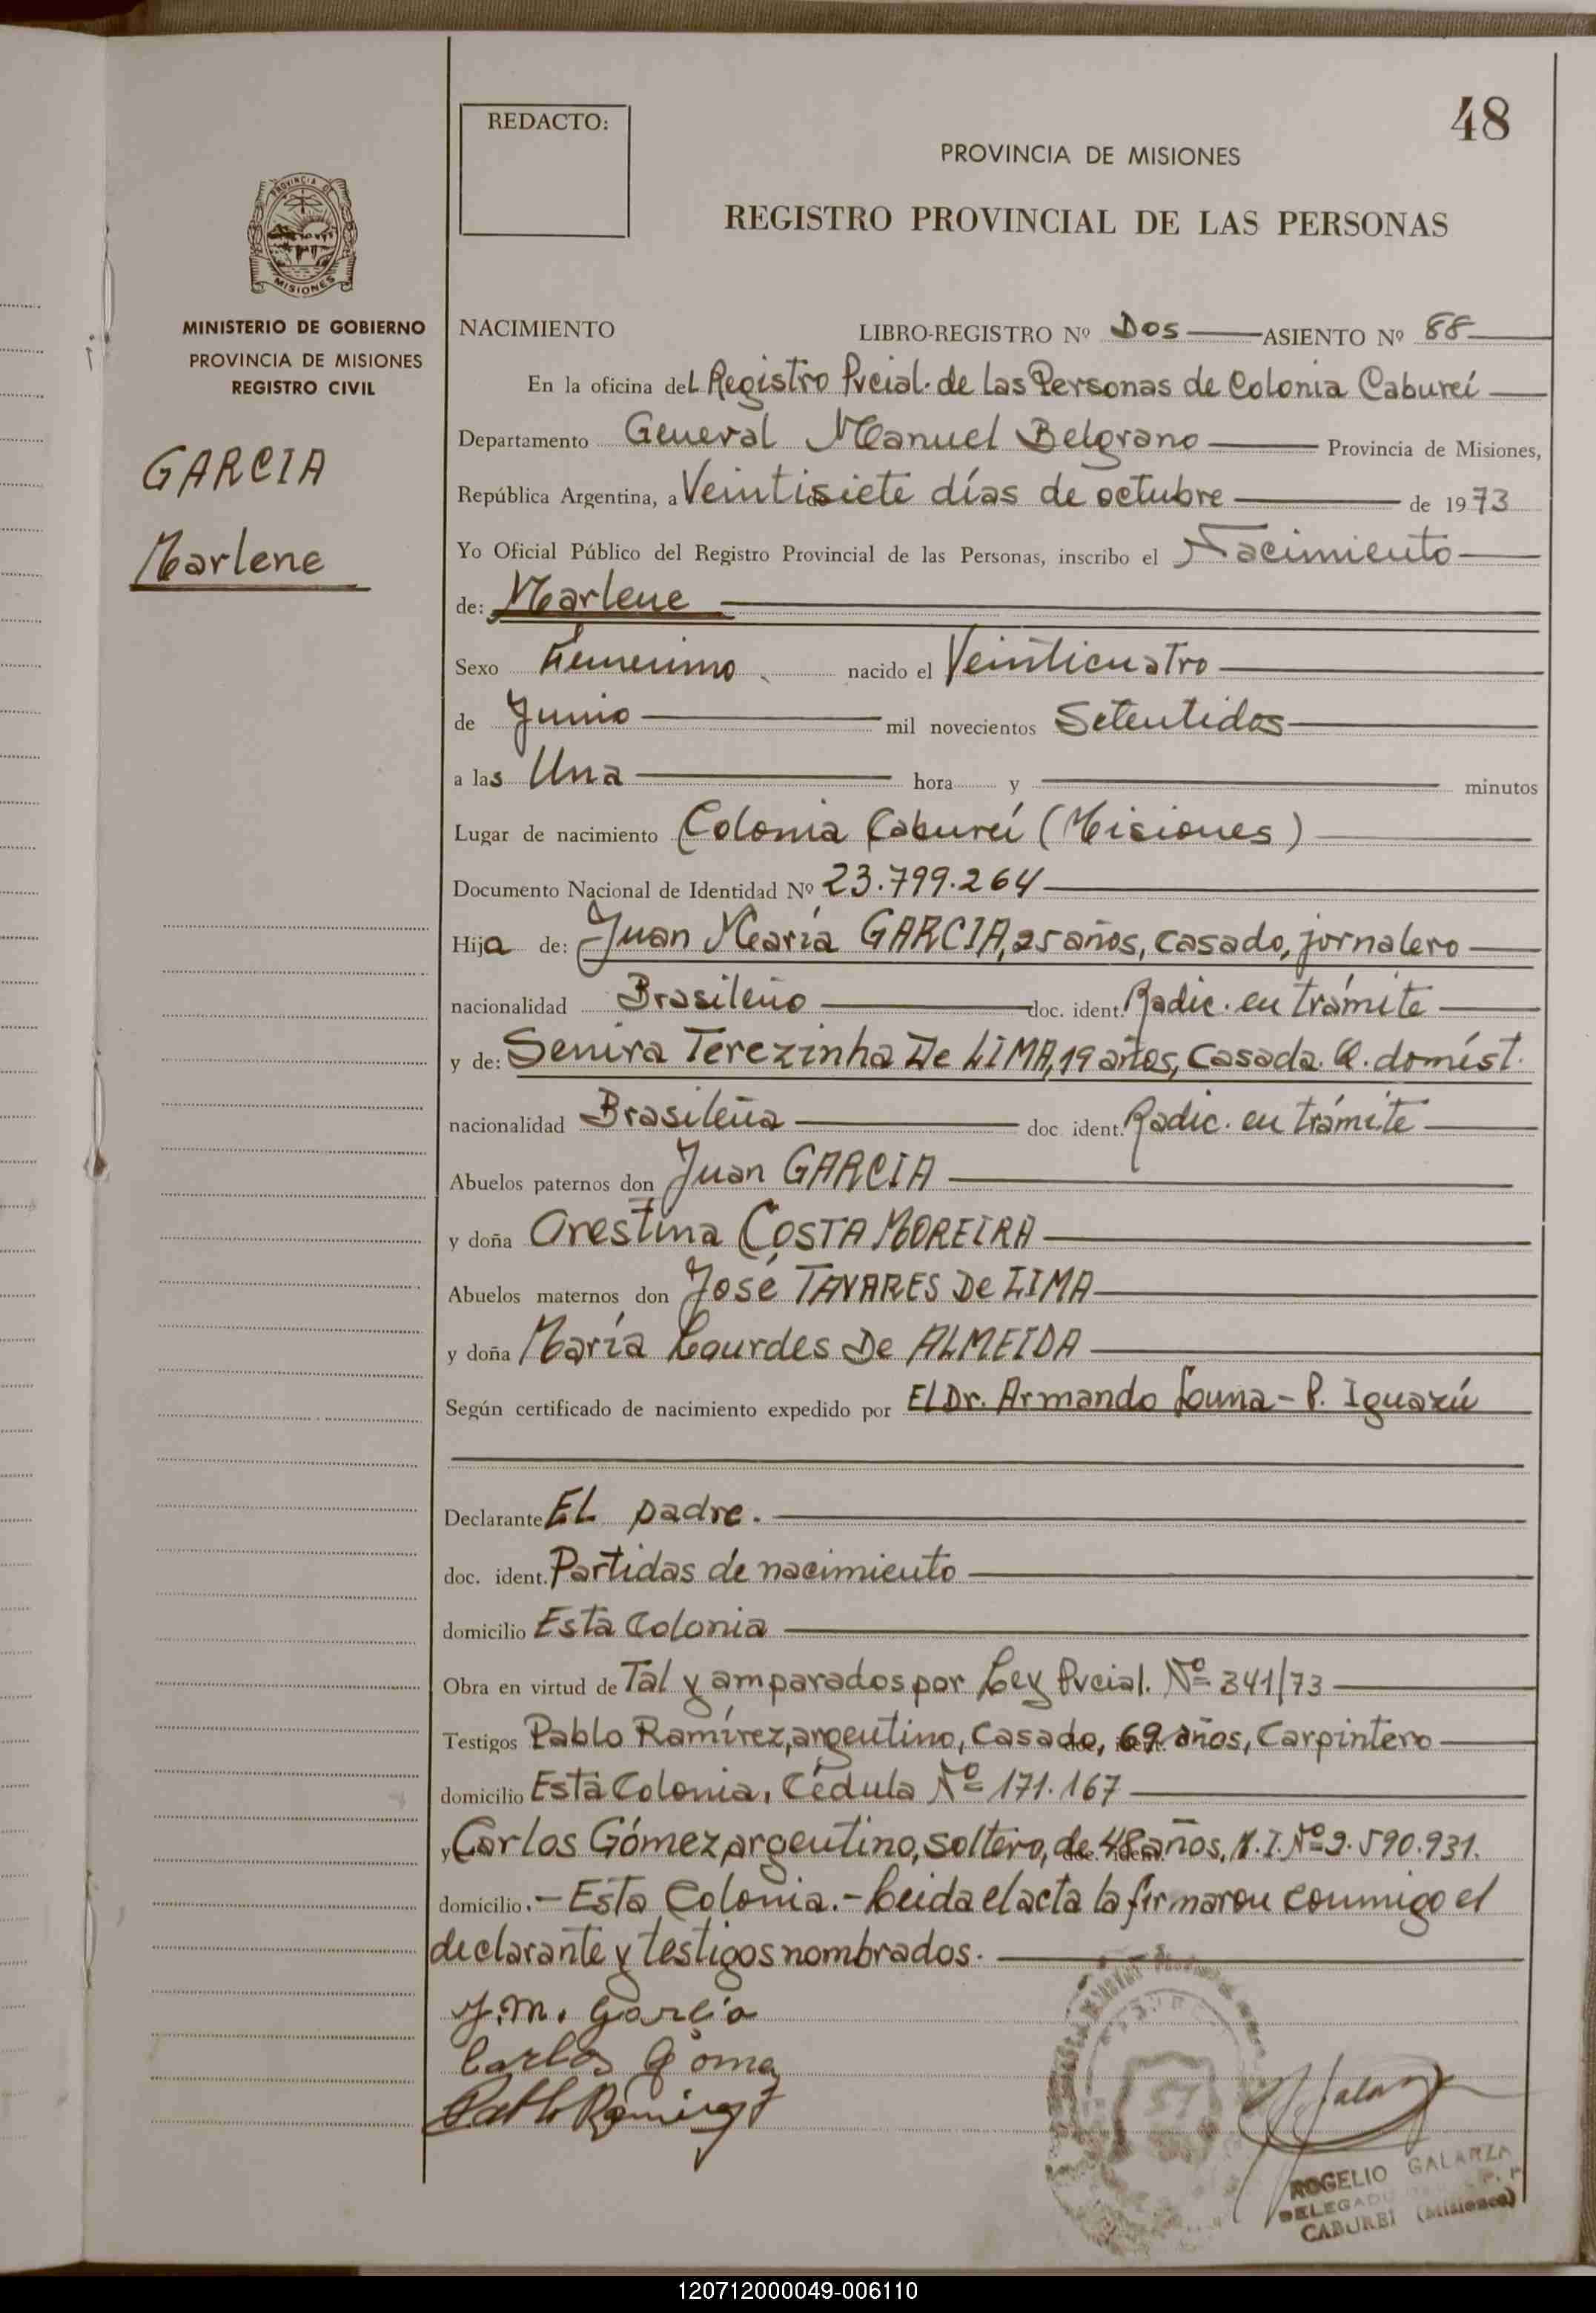 48
REDACTO:
PROVINCIA DE MISIONES
REGISTRO PROVINCIAL DE LAS PERSONAS
PROVINCIA DE
MISIONES
MINISTERIO DE GOBIERNO
PROVINCIA DE MISIONES
REGISTRO CIVIL
GARCIA
Marlene
NACIMIENTO LIBRO-REGISTRO Nº Dos ASIENTO Nº 88
En la oficina del Registro Pvcial. de las Personas de Colonia Caburei
Departamento General Manuel Belgrano Provincia de Misiones,
República Argentina, a Veintisiete días de octubre de 1973
Yo Oficial Público del Registro Provincial de las Personas, inscribo el Nacimiento
de: Marlene
Sexo Femenino nacido el Veinticuatro
de Junio mil novecientos Setentidos
a las Una hora y minutos
Lugar de nacimiento Colonia Caburei (Misiones)
Documento Nacional de Identidad Nº 23.799.264
Hija de: Juan María GARCIA, 25 años, casado, jornalero
nacionalidad Brasileño doc. ident. Radic. en trámite
y de: Senira Terezinha De LIMA, 19 años, Casada. Q. domést.
nacionalidad Brasileña doc ident. Radic. en trámite
Abuelos paternos don Juan GARCIA
y doña Orestina COSTA MOREIRA
Abuelos maternos don José TAVARES De LIMA
y doña María Lourdes De ALMEIDA
Según certificado de nacimiento expedido por El Dr. Armando - P. Iguazú
Declarante El padre.
doc. ident. Partidas de nacimiento
domicilio Esta Colonia
Obra en virtud de Tal y amparados por Ley Pvcial. Nº 341/73
Testigos Pablo Ramírez, argentino, Casado, 69 años, Carpintero
domicilio Esta Colonia, Cédula Nº 171.167
y Carlos Gómez argentino, soltero, de 48 años, M.I. Nº 9.590.931.
domicilio.- Esta Colonia.- Leida el acta la firmaron conmigo el
declarante y testigos nombrados.
J.M. Garcia
Carlos Gomez
Pablo Ramirez
ROGELIO GALARZA
DELEGADO
CABUREI (Misiones)
120712000049-006110